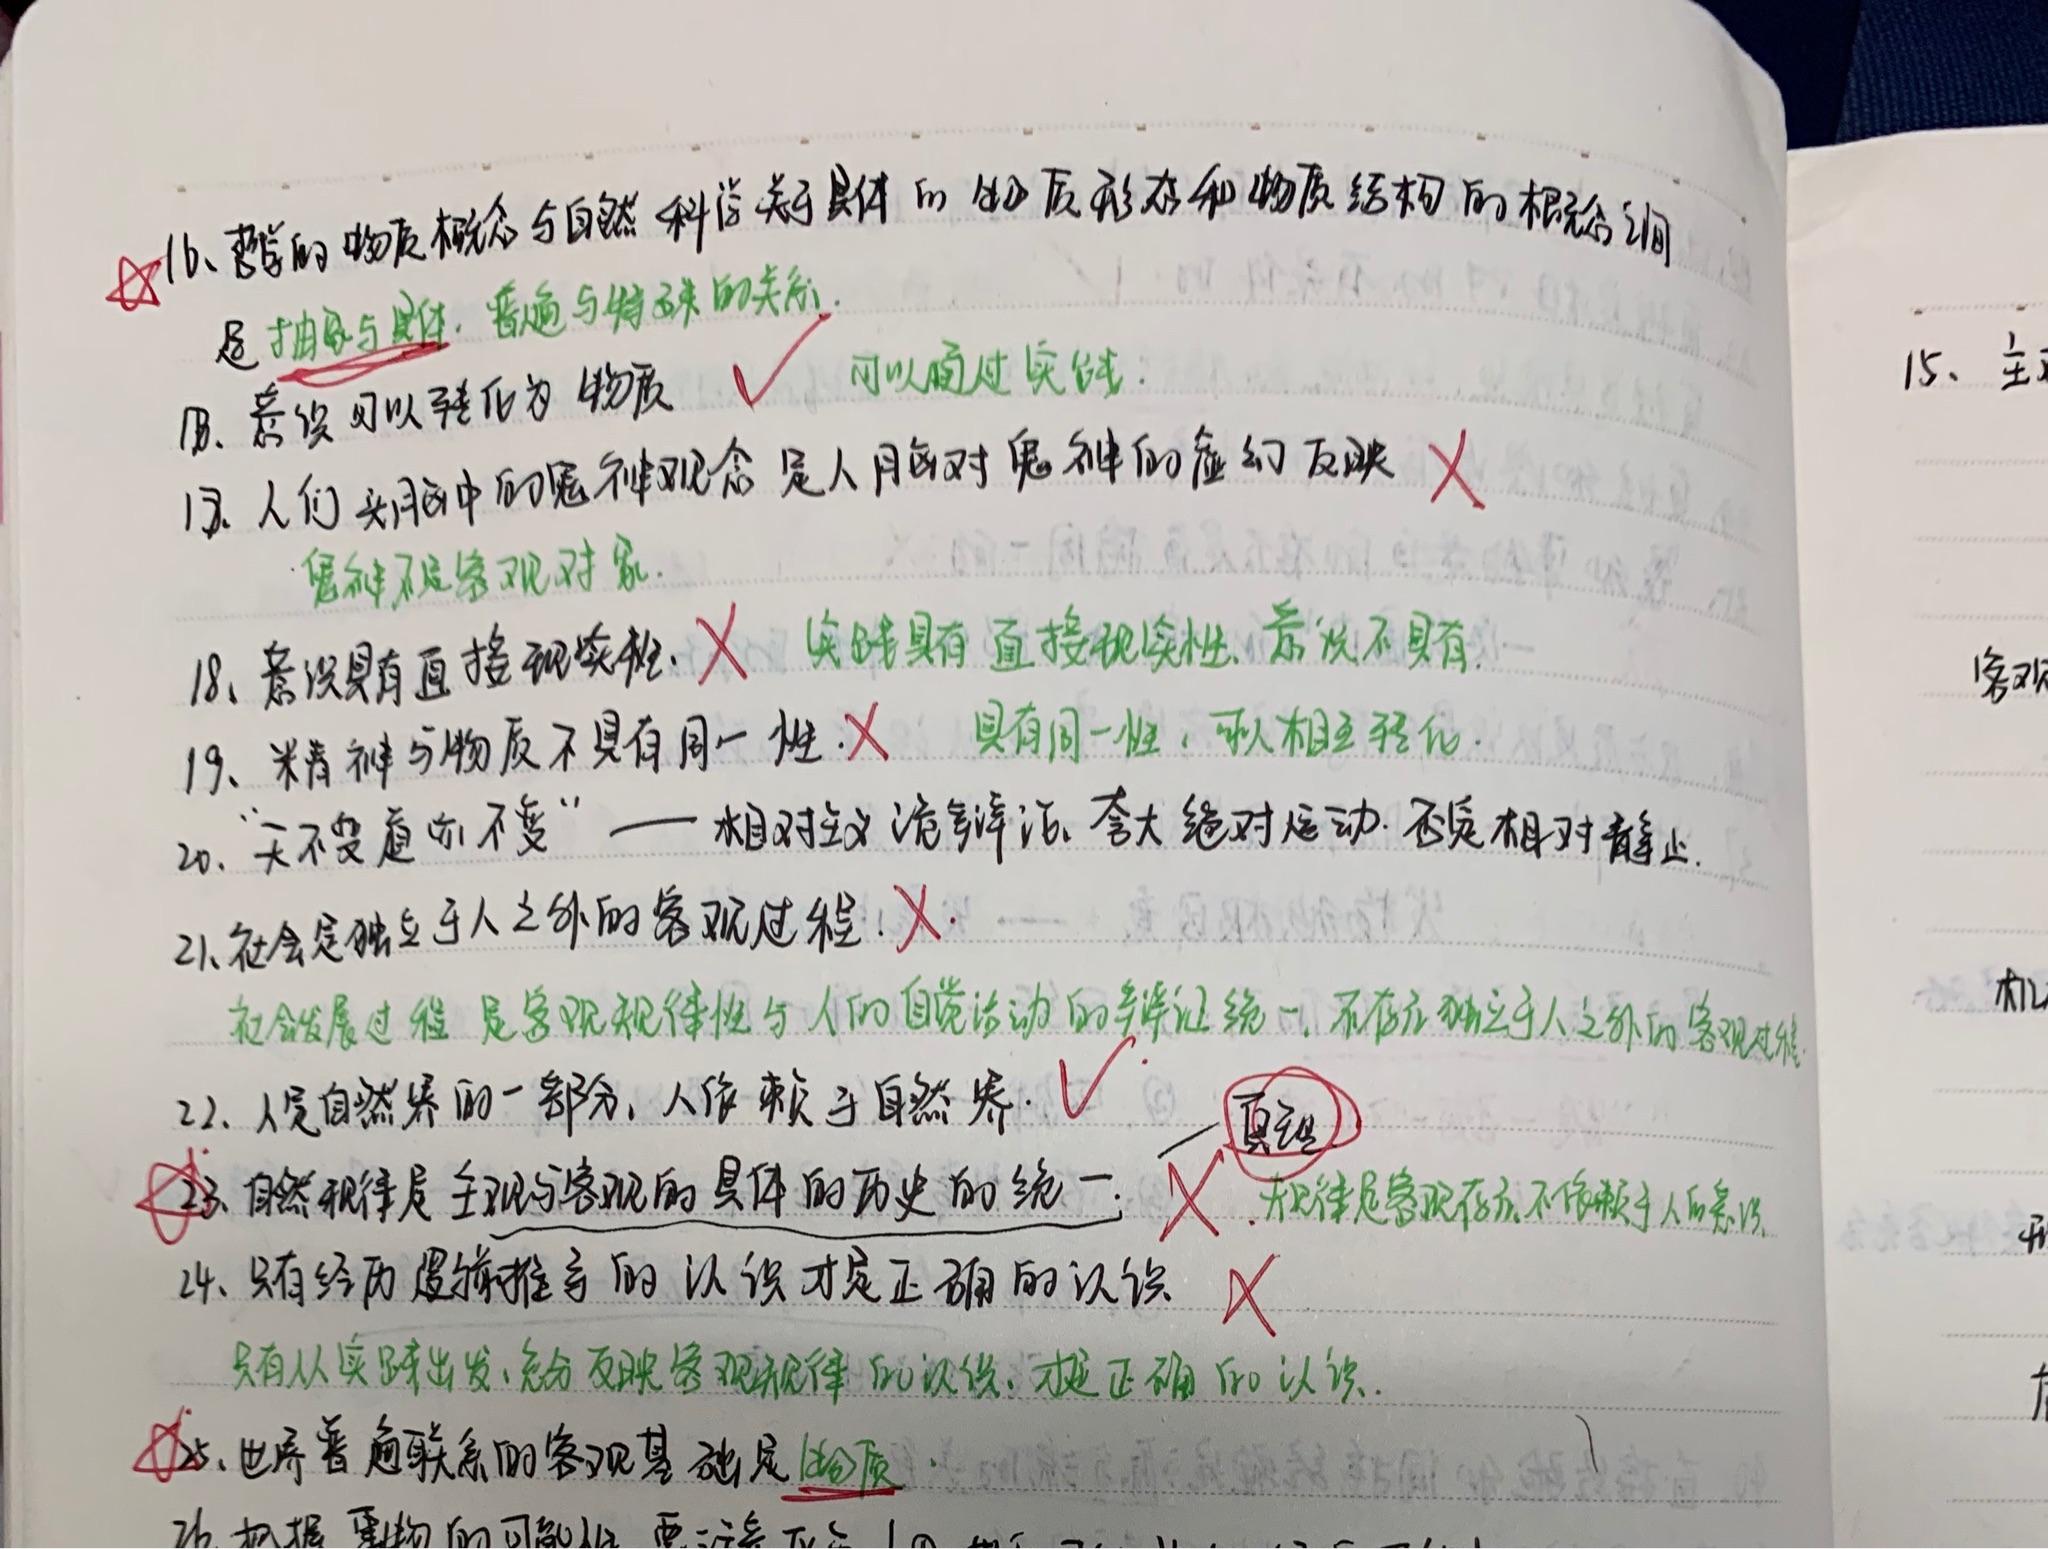 16、哲学的物质概念与自然科学关于具体的物质形态和物质结构的概念之间
是抽象与具体、普遍与特殊的关系.
意识可以转化为物质 ✓ 可以通过实践.
人们头脑中的鬼神观念是人脑对鬼神的虚幻反映 ×
鬼神不是客观对象.
18、意识具有直接现实性. × 实践具有直接现实性、意识不具有.
19、精神与物质不具有同一性. × 具有同一性,可以相互转化.
20、“天不变道亦不变” —— 相对主义诡辩论、夸大绝对运动.否定相对静止.
21、社会是独立于人之外的客观过程. ×
社会发展过程是客观规律性与人的自觉活动的辩证统一,不存在独立于人之外的客观过程.
22、人是自然界的一部分,人依赖于自然界. ✓
真理
23、自然规律是主观与客观的具体的历史的统一. × 规律是客观存在,不依赖于人的意识
24、只有经历逻辑推导的认识才是正确的认识 ×
只有从实践出发,充分反映客观规律的认识,才是正确的认识.
25、世界普遍联系的客观基础是物质.
26、把握事物的可能性要注意
15、主
客观
机